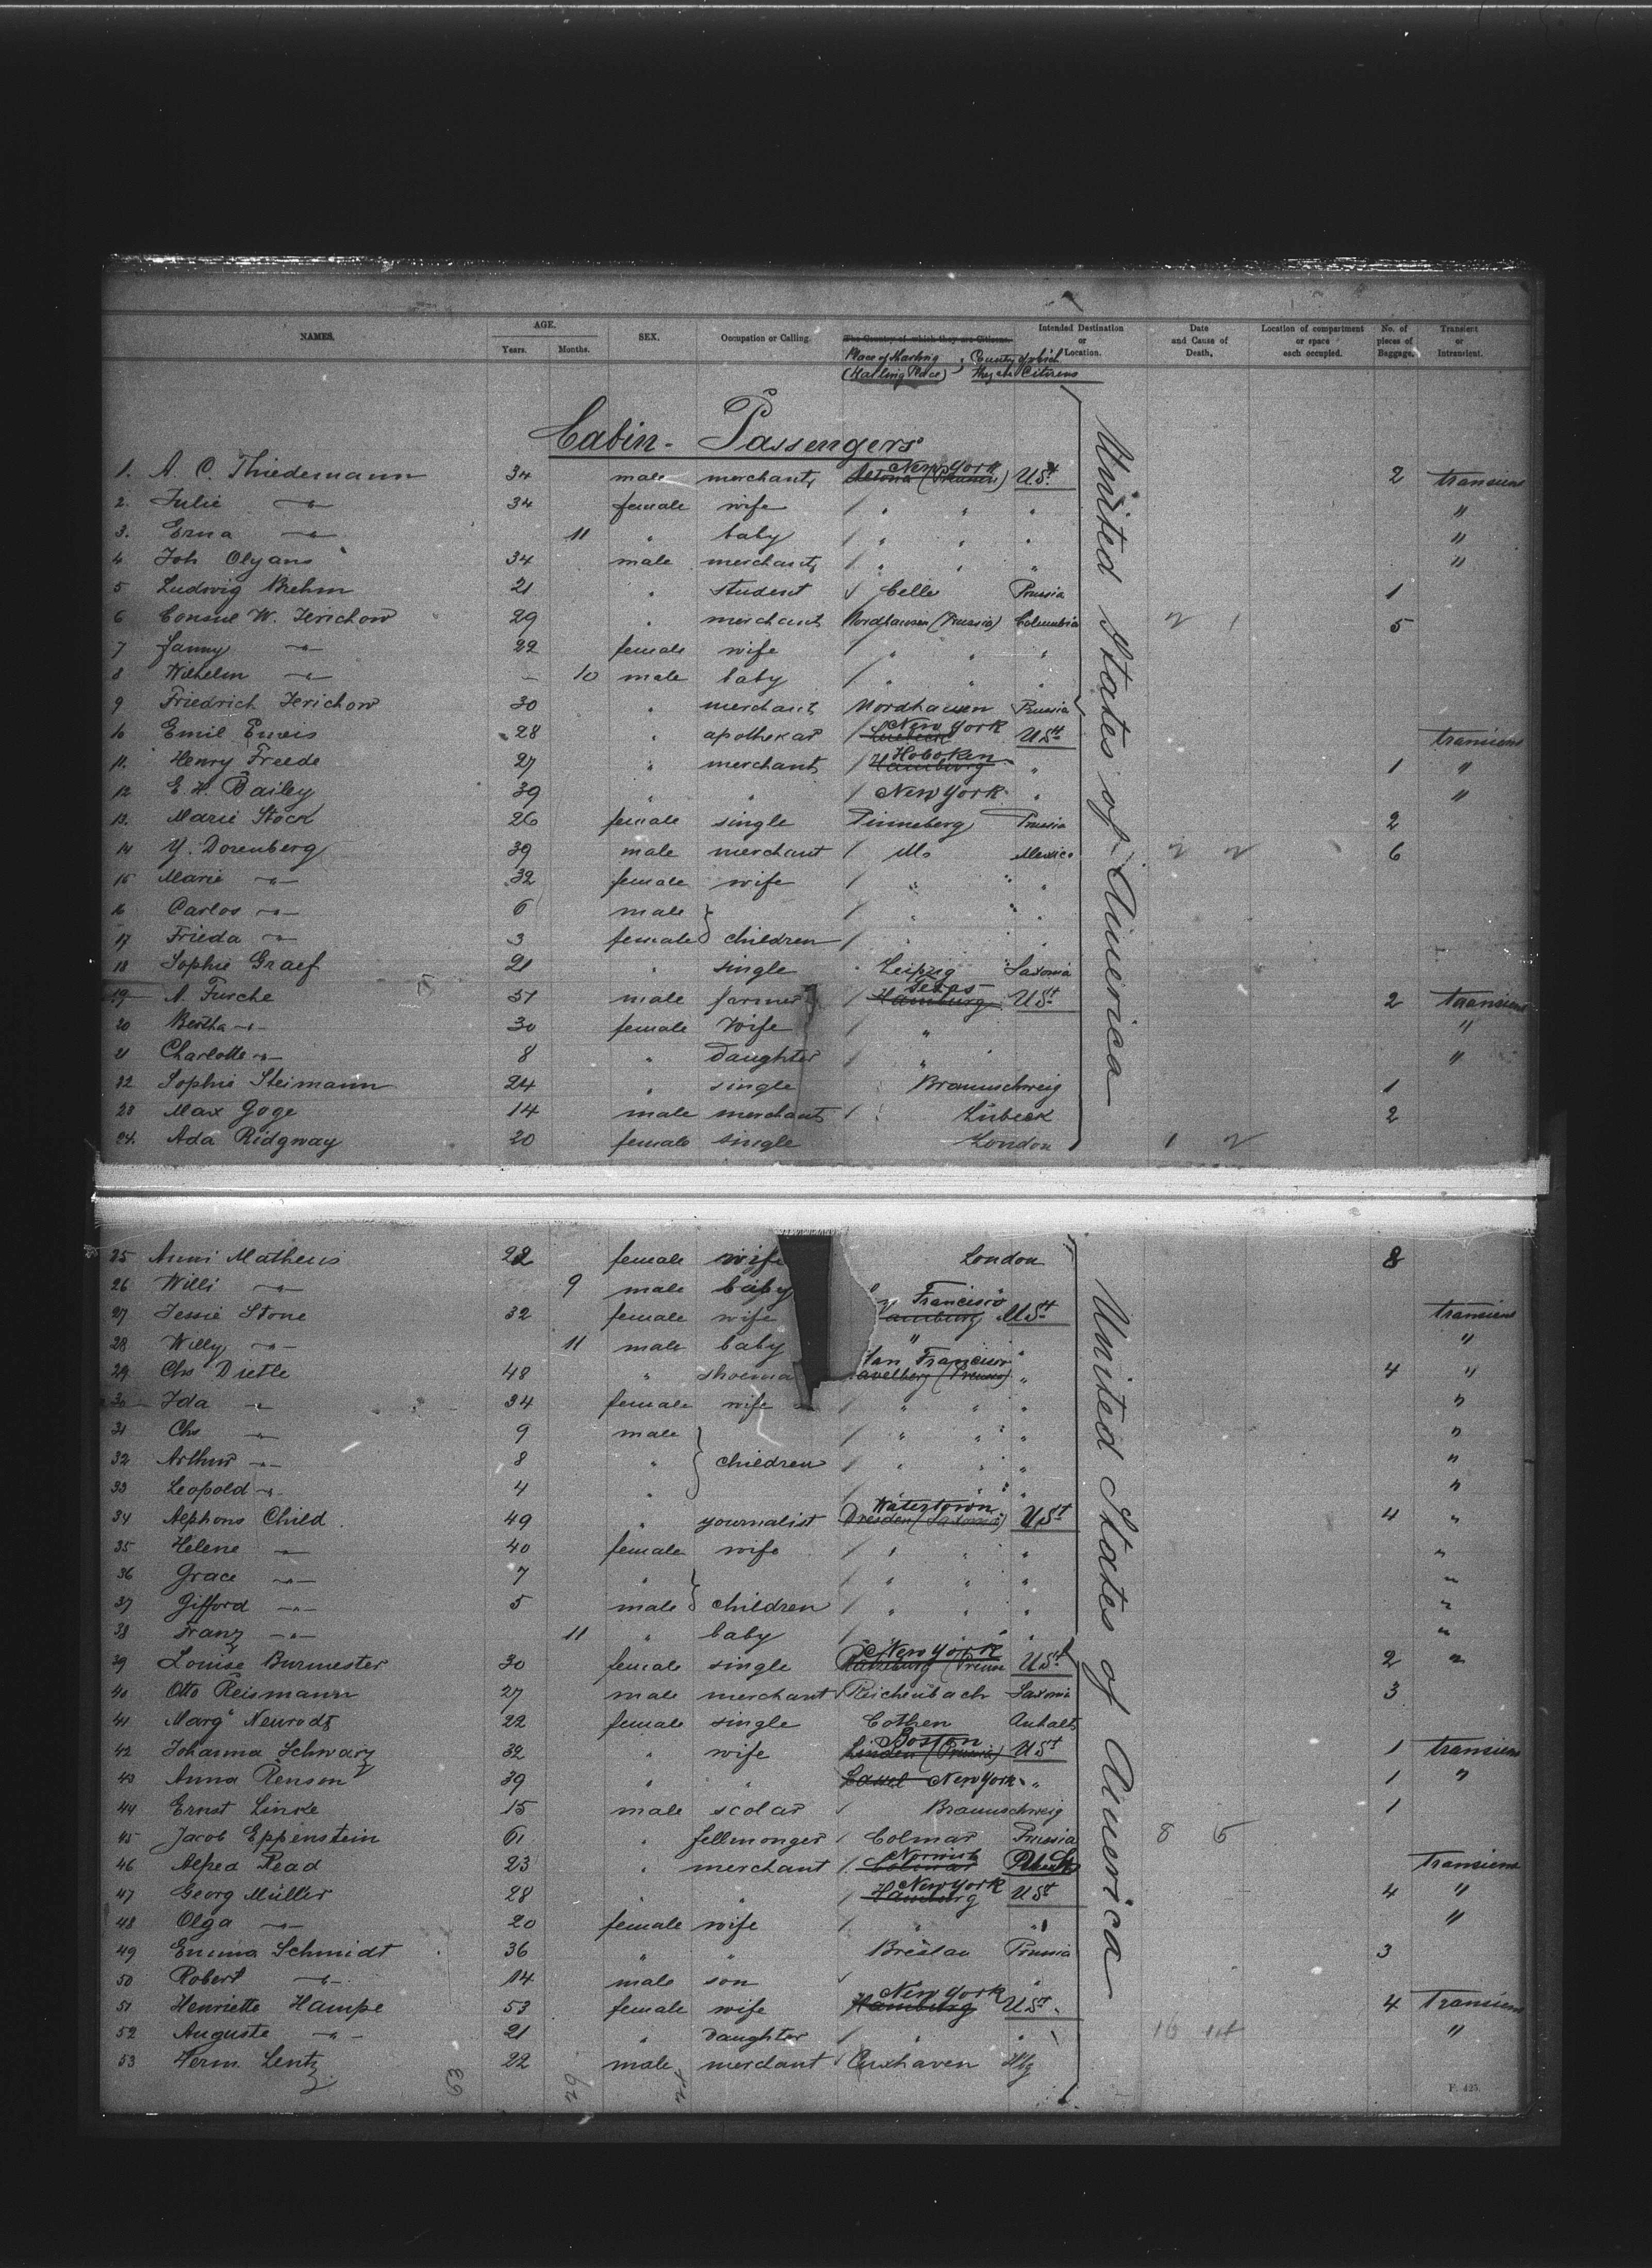 NAMES. AGE. Years. Months. SEX. Occupation or Calling. The Country of which they are Citizens. Intended Destination or Location. Date and Cause of Death. Location of compartment or space each occupied. No. of pieces of Baggage. Transient or Intransient.
Place of Starting (Starting Place) , County of which they are Citizens
Cabin - Passengers
United States of America
1. A. C. Thiedemann 34 male merchant Altona (Prussia) New York U.St. 2 transient
2. Julie —"— 34 female wife / " " " "
3. Erna —"— 11 " baby / " " " "
4 Joh Olyans 34 male merchant / " " " "
5 Ludwig Brehm 21 " student Celle Prussia 1
6 Consul W. Jerichow 29 " merchant Nordhausen (Prussia) Columbia 2 1 5
7 Fanny —"— 22 female wife / " " "
8 Wilhelm —"— – 10 male baby / " " "
9 Friedrich Jerichow 30 " merchant Nordhausen Prussia
10 Emil 28 " apothekar / Lübeck New York U.St. transient
11. Henry Freede 27 " merchant / Hamburg Hoboken " 1 "
12 E. H. Bailey 39 " " / New York " "
13. Marie Stock 26 female single Pinneberg Prussia 2
14 Y. Dorenberg 39 male merchant / Mexico 2 2 6
15 Marie —"— 32 female wife / " " "
16 Carlos —"— 6 male / " "
17 Frieda —"— 3 female } children / " "
18 Sophie Graef 21 " single Leipzig Saxonia
19 A. Fusche male farmer / Hamburg Texas U.St. 2 transient
20 Bertha —"— 30 female wife / " "
21 Charlotte —"— 8 " daughter / " "
22 Sophie Steimann 24 " single Braunschweig 1
23 Max Goge 14 male merchant / Lübeck 2
24. Ada Ridgway 20 female single London 1 2
United States of America
25 Anni Matheis 22 female wife London 8
26 Willi —"— 9 male baby
27 Jessie Stone 32 female wife Francisco amburg U.St. transient
28 Willy —"— 11 male baby " " "
29 Chs Dietle 48 " shoema San Francisco avelberg (Preuss) " 4 "
30 Ida —"— 34 female wife / " " " "
31 Chs —"— 9 male / " " " "
32 Arthur —"— 8 " } children / " " " "
33 Leopold —"— 4 " / " " "
34 Alphons Child 49 " journalist Dresden (Saxonia) Watertown U.St. 4 "
35 Helene —"— 40 female wife / " " " "
36 Grace —"— 7 " / " " " "
37 Gifford —"— 5 male } children / " " " "
38 Franz —"— 11 " baby / " " " "
39 Louise Burmester 30 female single New York U.St. 2 "
40 Otto Reismann 27 male merchant Reichenbach Saxonia 3
41 Marg. Neurodt 22 female single Cothen Anhalt
42 Johanna Schwarz 32 " wife Linden (Prussia) Boston U.St. 1 transient
43 Anna Renson 39 " " Cassel New York " 1 "
44 Ernst Lincke 15 male scolar Braunschweig 1
45 Jacob Eppenstein 61 " fellmonger / Colmar Prussia 8 5
46 Alfred Read 23 " merchant / Colmar Norwich transient
47 Georg Müller 28 " " / Hamburg New York U.St. 4 "
48 Olga —"— 20 female wife / " " "
49 Emma Schmidt 36 " " Breslau Prussia 3
50 Robert —"— 14 male son "
51 Henriette Hampe 53 female wife Hamburg New York U.St. 4 transient
52 Auguste —"— 21 " daughter / " " "
53 Herm. Lentz 22 male merchant Cuxhaven Hbg
F. 425.